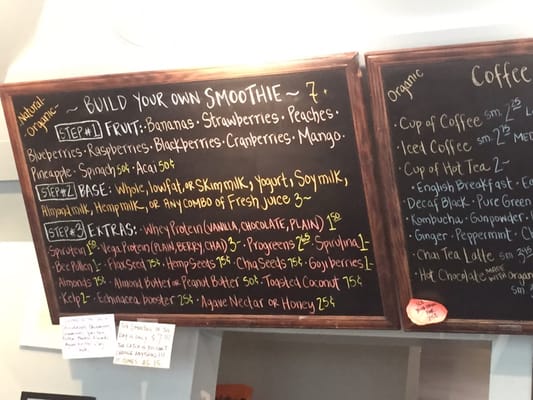 Natural-
Organic-
~ BUILD YOUR OWN SMOOTHIE ~ 7.
STEP #1 FRUIT: Bananas · Strawberries · Peaches ·
Blueberries · Raspberries · Blackberries · Cranberries · Mango ·
Pineapple · Spinach 50¢ · Acai 50¢
STEP #2 BASE: Whole, lowfat, OR Skim milk, Yogurt, Soy milk,
Almond milk, Hemp milk, OR Any COMBO of Fresh Juice 3~
STEP #3 EXTRAS: · Whey Protein (VANILLA, CHOCOLATE, PLAIN) 1.50
Spirutein 1.50 · Vega Protein (PLAIN, BERRY, CHAI) 3- · Progreens 2 · Spirulina 1-
Bee Pollen 1- · Flax Seed 75¢ · Hemp Seeds 75¢ · Chia Seeds 75¢ · Goji berries 1-
Almonds 75¢ · Almond Butter or Peanut Butter 50¢ · Toasted Coconut 75¢
·Kelp 2- · Echinacea booster 25¢ · Agave Nectar OR Honey 25¢
Organic
Coffee
· Cup of Coffee sm. 2.25
· Iced Coffee sm. 2.75 MED
· Cup of Hot Tea 2~
· English Breakfast · Ea
Decaf Black · Pure Green
Kombucha · Gunpowder ·
Ginger · Peppermint · Ch
· Chai Tea Latte sm 3
· Hot Chocolate MADE WITH Organic
sm 3